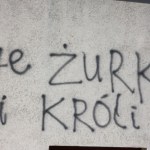 że ŻURK
i KRÓLi